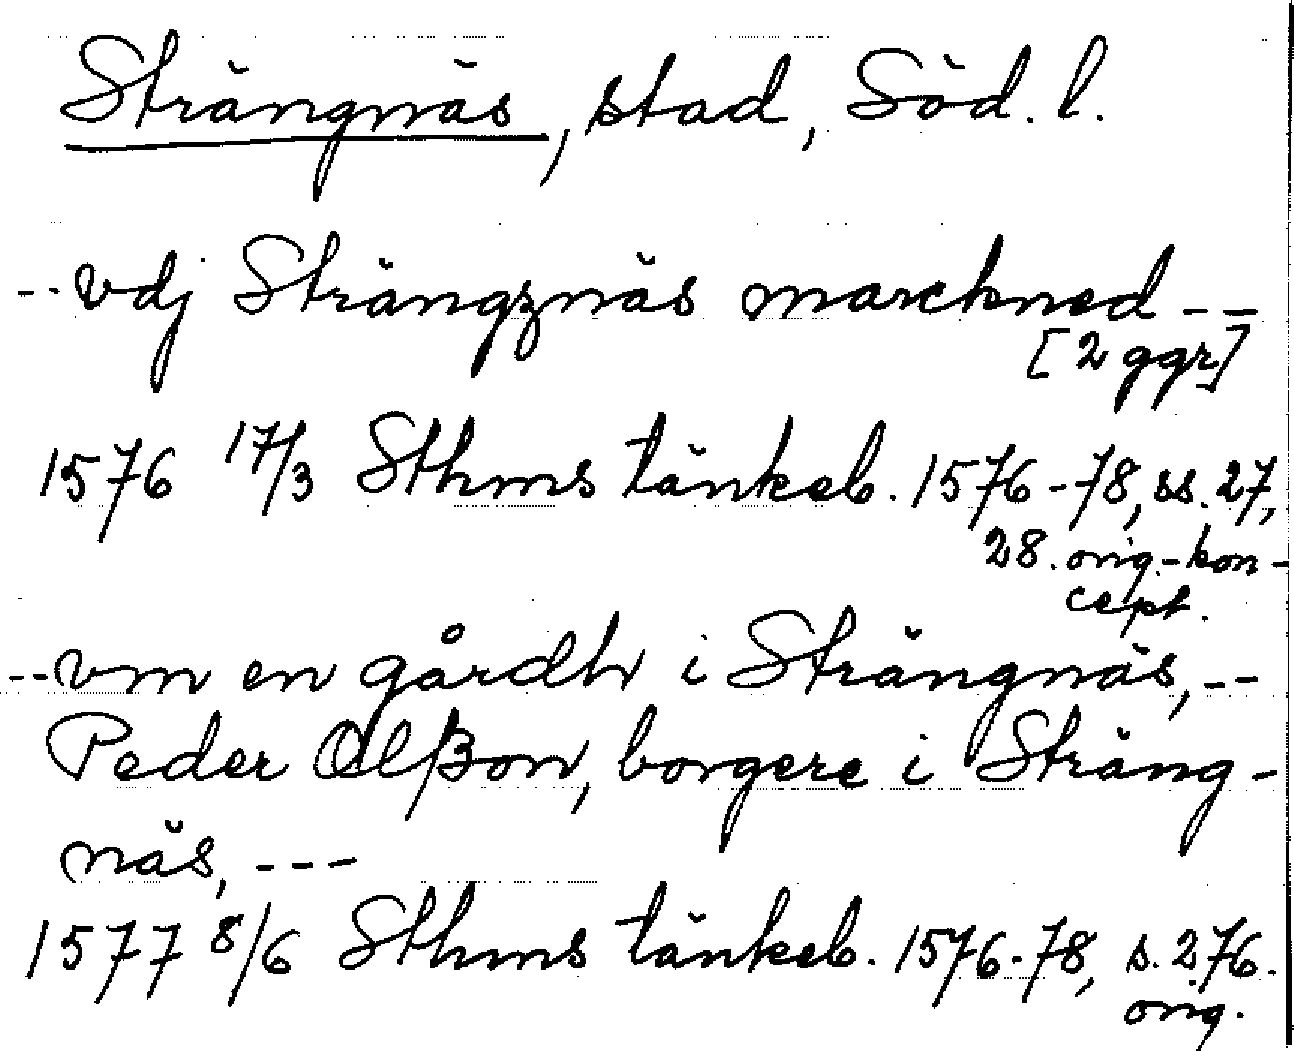 Strängnäs, stad, Söd. l.
--vdj Strängznäs marcknad --
[2 ggr]
1576 17/3 Sthms tänkeb. 1576-78, ss. 27,
28. orig.-kon-
cept.
--vm en gårdh i Strängnäs, --
Peder Olßon, borgere i Sträng-
näs, ---
1577 8/6 Sthms tänkeb. 1576-78, s. 276.
orig.